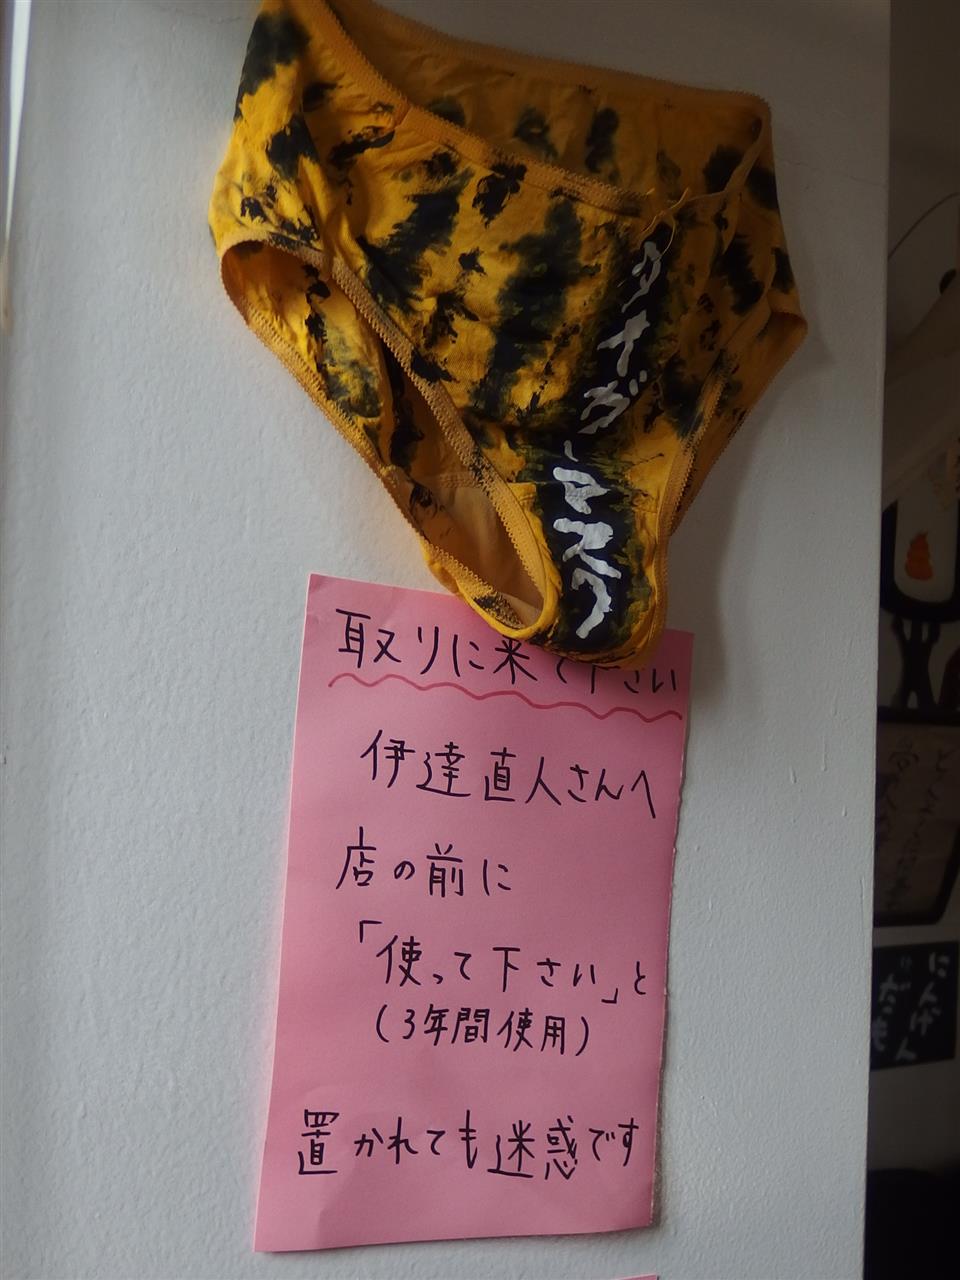 タイガーマスク
取りに来て下さい
伊達直人さんへ
店の前に
「使って下さい」と
(3年間使用)
置かれても迷惑です
にんげん
だもの